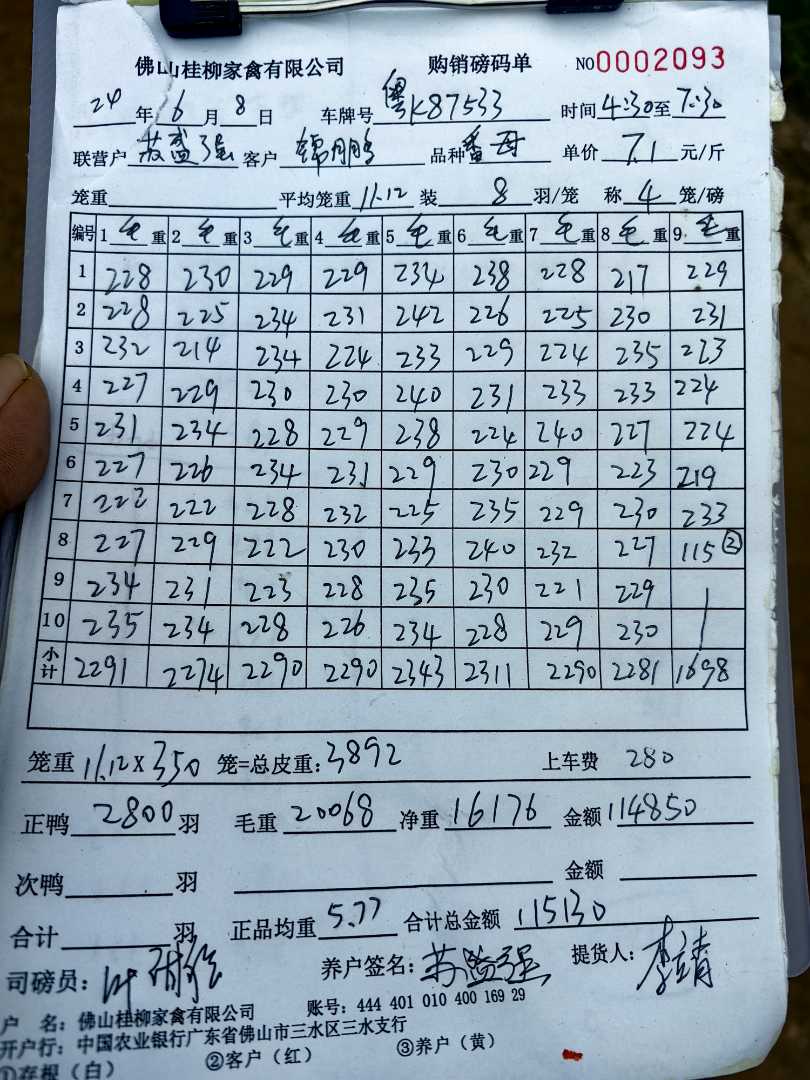 佛山桂柳家禽有限公司 购销磅码单 NO0002093
24年6月8日 车牌号 粤K87533 时间4:30至7:30
联营户 苏盛强 客户 锦鹏 品种 番母 单价 7.1 元/斤
笼重 平均笼重 11.12 装 8 羽/笼 称 4 笼/磅
编号 1 毛重 2 毛重 3 毛重 4 毛重 5 毛重 6 毛重 7 毛重 8 毛重 9 毛重
1 228 230 229 229 234 238 228 217 229
2 228 225 234 231 242 226 225 230 231
3 232 214 234 224 233 229 224 235 223
4 227 229 230 230 240 231 233 233 224
5 231 234 228 229 238 224 240 227 224
6 227 226 234 231 229 230 229 223 219
7 222 222 228 232 225 235 229 230 233
8 227 229 222 230 233 240 232 227 115 ②
9 234 231 223 228 235 230 221 229
10 235 234 228 226 234 228 229 230
小计 2291 2274 2290 2290 2343 2311 2290 2281 1698
笼重 11.12 X 350 笼=总皮重: 3892 上车费 280
正鸭 2800 羽 毛重 20068 净重 16176 金额 114850
次鸭 羽 金额
合计 羽 正品均重 5.77 合计总金额 115130
司磅员: 叶 养户签名: 苏盛强 提货人: 李靖
户 名: 佛山桂柳家禽有限公司 账号: 444 401 010 400 169 29
开户行: 中国农业银行广东省佛山市三水区三水支行
①存根（白） ②客户（红） ③养户（黄）